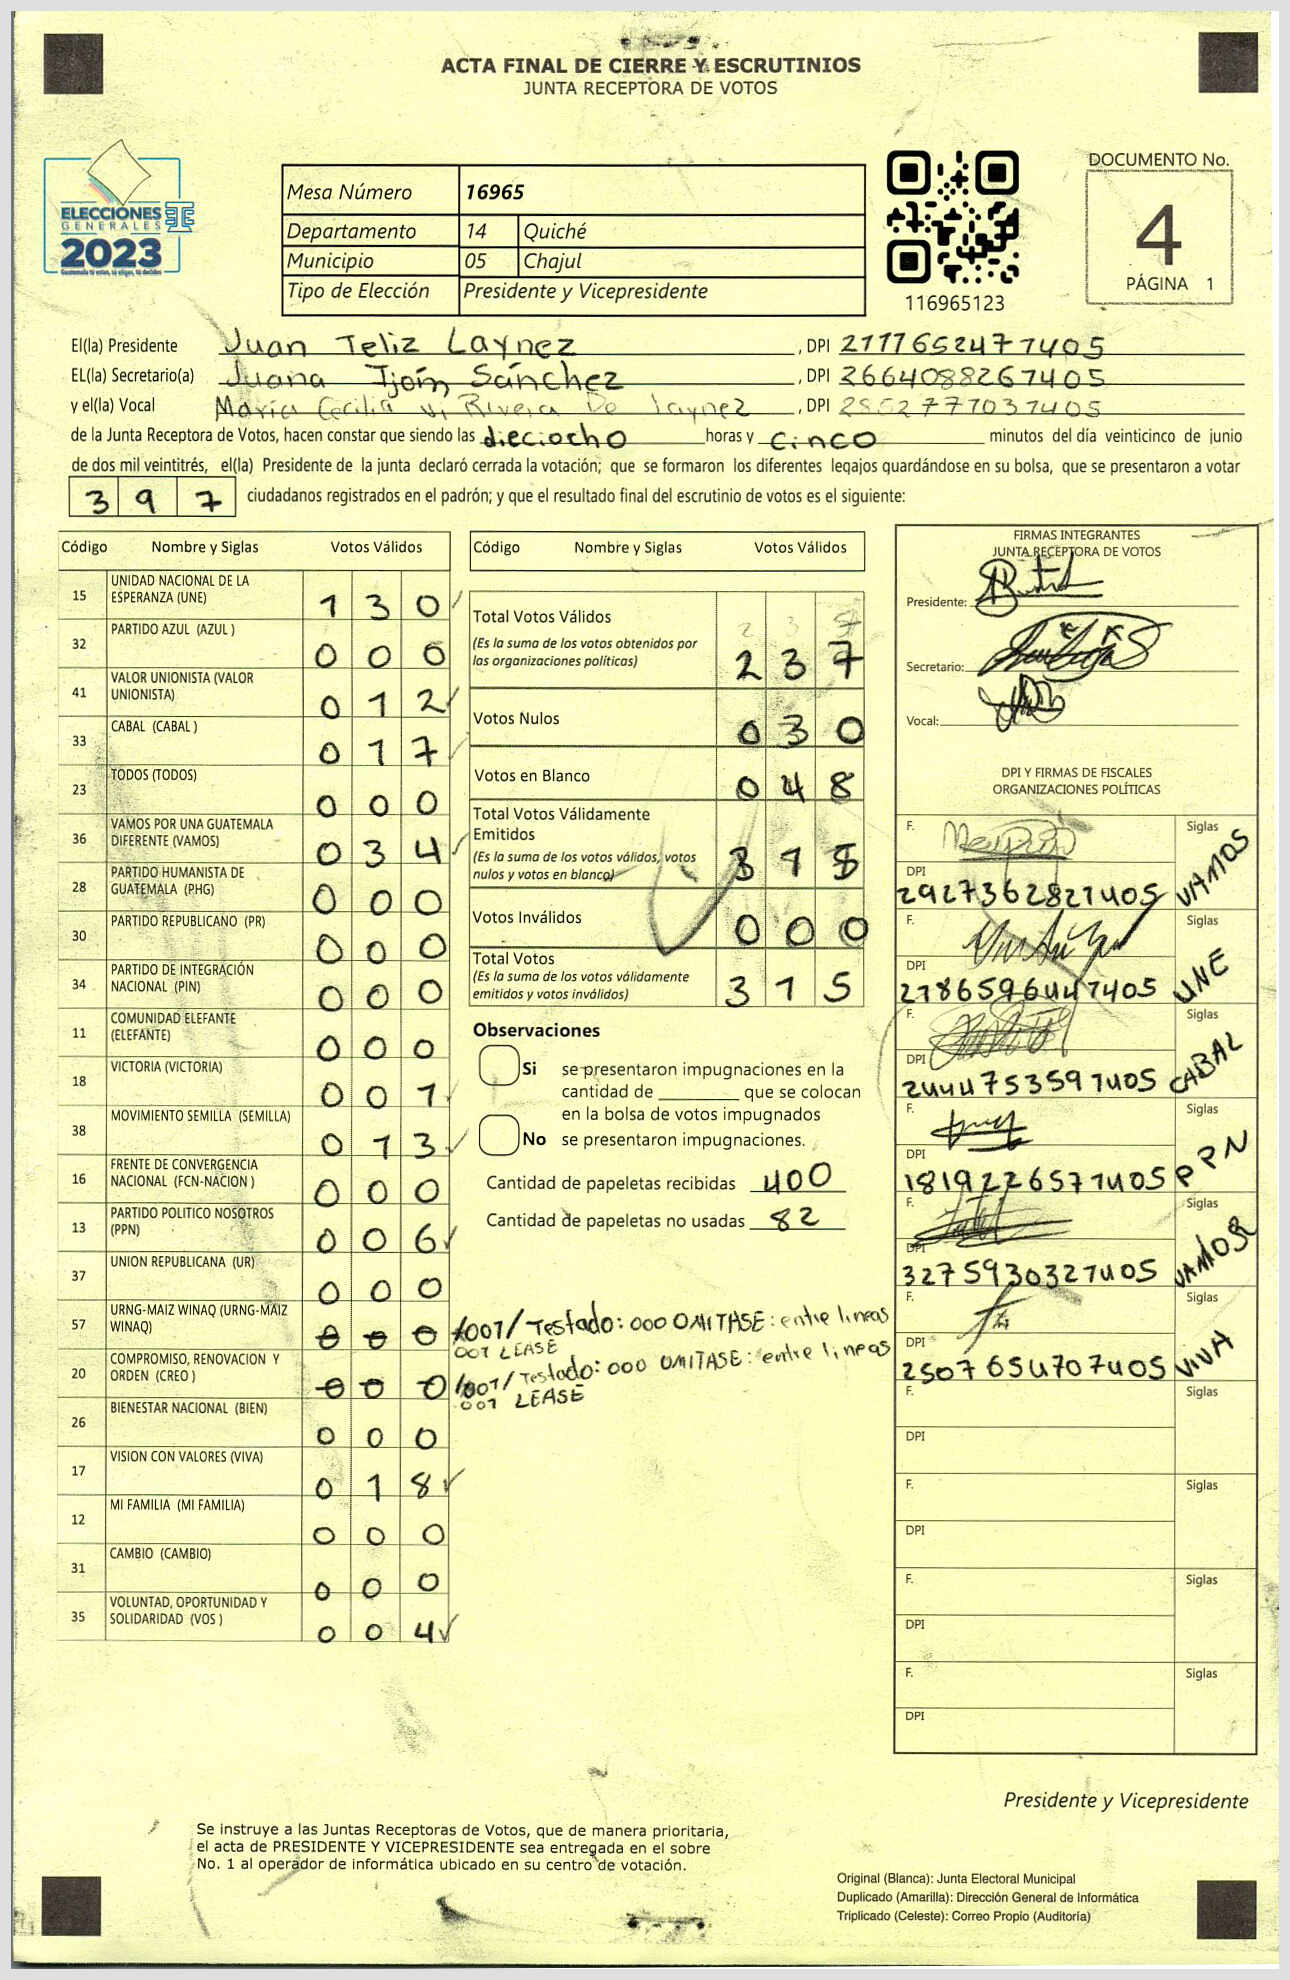 ACTA FINAL DE CIERRE Y ESCRUTINIOS
JUNTA RECEPTORA DE VOTOS
ELECCIONES
GENERALES
2023
Guatemala tú estas, tú eliges, tú decides
Mesa Número 16965
Departamento 14 Quiché
Municipio 05 Chajul
Tipo de Elección Presidente y Vicepresidente
116965123
DOCUMENTO No.
4
PÁGINA 1
El(la) Presidente Juan Teliz Laynez, DPI 2117652471405
EL(la) Secretario(a) Juana Tjom Sánchez, DPI 2664088261405
y el(la) Vocal María Cecilia Rivera De Laynez, DPI 2852777031405
de la Junta Receptora de Votos, hacen constar que siendo las dieciocho horas y cinco minutos del día veinticinco de junio
de dos mil veintitrés, el(la) Presidente de la junta declaró cerrada la votación; que se formaron los diferentes legajos guardándose en su bolsa, que se presentaron a votar
397 ciudadanos registrados en el padrón; y que el resultado final del escrutinio de votos es el siguiente:
Código Nombre y Siglas Votos Válidos
15 UNIDAD NACIONAL DE LA ESPERANZA (UNE) 130
32 PARTIDO AZUL (AZUL ) 000
41 VALOR UNIONISTA (VALOR UNIONISTA) 012
33 CABAL (CABAL ) 017
23 TODOS (TODOS) 000
36 VAMOS POR UNA GUATEMALA DIFERENTE (VAMOS) 034
28 PARTIDO HUMANISTA DE GUATEMALA (PHG) 000
30 PARTIDO REPUBLICANO (PR) 000
34 PARTIDO DE INTEGRACIÓN NACIONAL (PIN) 000
11 COMUNIDAD ELEFANTE (ELEFANTE) 000
18 VICTORIA (VICTORIA) 001
38 MOVIMIENTO SEMILLA (SEMILLA) 013
16 FRENTE DE CONVERGENCIA NACIONAL (FCN-NACION ) 000
13 PARTIDO POLITICO NOSOTROS (PPN) 006
37 UNION REPUBLICANA (UR) 000
57 URNG-MAIZ WINAQ (URNG-MAIZ WINAQ) 000 /001/ Testado: 000 OMITASE: entre lineas
001 LEASE
20 COMPROMISO, RENOVACION Y ORDEN (CREO ) 000 /001/ Testado: 000 OMITASE: entre lineas
001 LEASE
26 BIENESTAR NACIONAL (BIEN) 000
17 VISION CON VALORES (VIVA) 018
12 MI FAMILIA (MI FAMILIA) 000
31 CAMBIO (CAMBIO) 000
35 VOLUNTAD, OPORTUNIDAD Y SOLIDARIDAD (VOS ) 004
Código Nombre y Siglas Votos Válidos
Total Votos Válidos 237
(Es la suma de los votos obtenidos por
las organizaciones políticas) 237
Votos Nulos 030
Votos en Blanco 048
Total Votos Válidamente
Emitidos
(Es la suma de los votos válidos, votos
nulos y votos en blanco) 315
Votos Inválidos 000
Total Votos
(Es la suma de los votos válidamente
emitidos y votos inválidos) 315
Observaciones
Si se presentaron impugnaciones en la
cantidad de ________ que se colocan
en la bolsa de votos impugnados
No se presentaron impugnaciones.
Cantidad de papeletas recibidas 400
Cantidad de papeletas no usadas 82
FIRMAS INTEGRANTES
JUNTA RECEPTORA DE VOTOS
Presidente:
Secretario:
Vocal:
DPI Y FIRMAS DE FISCALES
ORGANIZACIONES POLÍTICAS
F. Siglas
DPI 2927362821405 VAMOS
F. Siglas
DPI 2786596441405 UNE
F. Siglas
DPI 2444753591405 CABAL
F. Siglas
DPI 1819226571405 PPN
F. Siglas
DPI 3275930321405
F. Siglas
DPI 2507654707405 VIVA
F. Siglas
DPI
F. Siglas
DPI
F. Siglas
DPI
F. Siglas
DPI
Presidente y Vicepresidente
Se instruye a las Juntas Receptoras de Votos, que de manera prioritaria,
el acta de PRESIDENTE Y VICEPRESIDENTE sea entregada en el sobre
No. 1 al operador de informática ubicado en su centro de votación.
Original (Blanca): Junta Electoral Municipal
Duplicado (Amarilla): Dirección General de Informática
Triplicado (Celeste): Correo Propio (Auditoría)